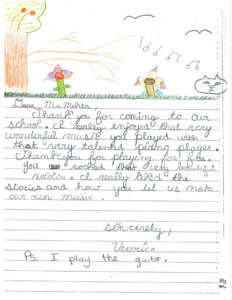 Dear Mr. Mehta,
Thank you for coming to our
school. I really enjoyed that very
wonderful music you played with
that very talented piano player.
Thank you for playing for free.
You rocked that very beautiful
violin. I really liked the
stories and how you let us make
our own music.
Sincerely,
Veronica
P.S. I play the guitar.